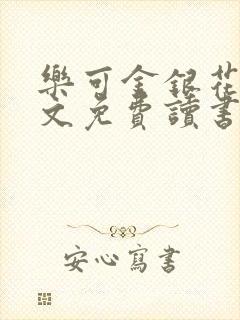 樂可金銀花
文免費讀書
安心寫書